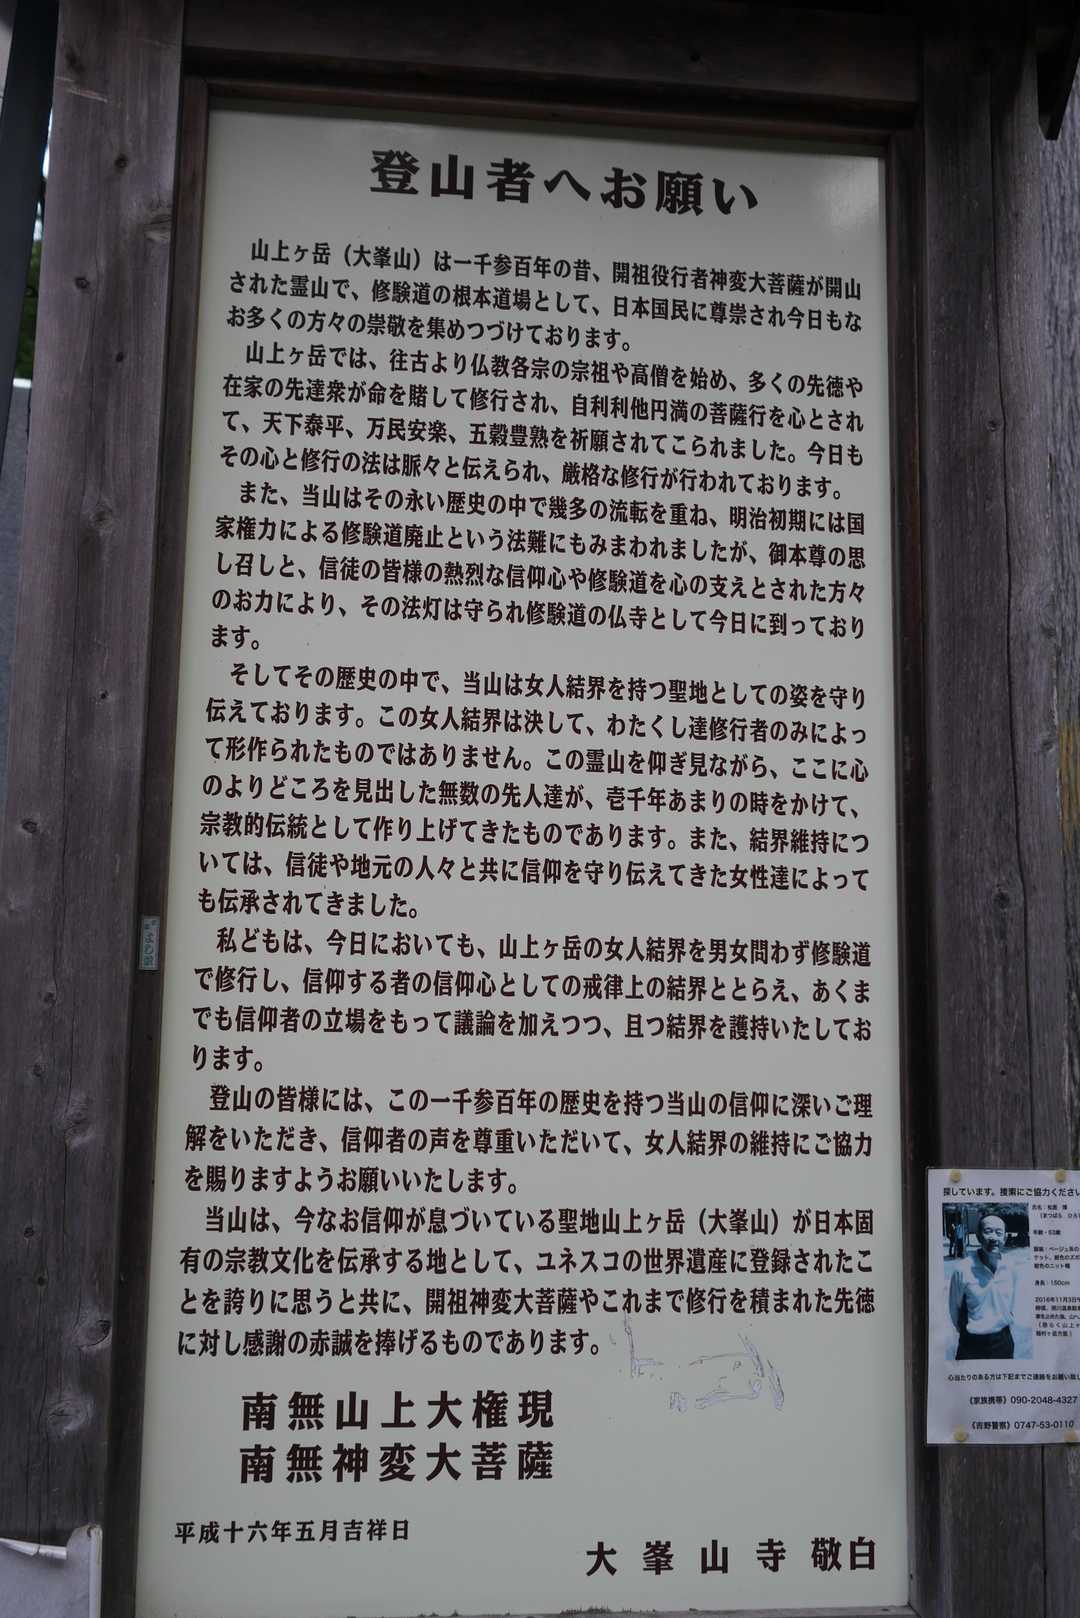 登山者へお願い
山上ヶ岳（大峯山）は一千参百年の昔、開祖役行者神変大菩薩が開山
された霊山で、修験道の根本道場として、日本国民に尊崇され今日もな
お多くの方々の崇敬を集めつづけております。
山上ヶ岳では、往古より仏教各宗の宗祖や高僧を始め、多くの先徳や
在家の先達衆が命を賭して修行され、自利利他円満の菩薩行を心とされ
て、天下泰平、万民安楽、五穀豊熟を祈願されてこられました。今日も
その心と修行の法は脈々と伝えられ、厳格な修行が行われております。
また、当山はその永い歴史の中で幾多の流転を重ね、明治初期には国
家権力による修験道廃止という法難にもみまわれましたが、御本尊の思
し召しと、信徒の皆様の熱烈な信仰心や修験道を心の支えとされた方々
のお力により、その法灯は守られ修験道の仏寺として今日に到っており
ます。
そしてその歴史の中で、当山は女人結界を持つ聖地としての姿を守り
伝えております。この女人結界は決して、わたくし達修行者のみによっ
て形作られたものではありません。この霊山を仰ぎ見ながら、ここに心
のよりどころを見出した無数の先人達が、壱千年あまりの時をかけて、
宗教的伝統として作り上げてきたものであります。また、結界維持につ
いては、信徒や地元の人々と共に信仰を守り伝えてきた女性達によって
も伝承されてきました。
私どもは、今日においても、山上ヶ岳の女人結界を男女問わず修験道
で修行し、信仰する者の信仰心としての戒律上の結界ととらえ、あくま
でも信仰者の立場をもって議論を加えつつ、且つ結界を護持いたしてお
ります。
登山の皆様には、この一千参百年の歴史を持つ当山の信仰に深いご理
解をいただき、信仰者の声を尊重いただいて、女人結界の維持にご協力
を賜りますようお願いいたします。
当山は、今なお信仰が息づいている聖地山上ヶ岳（大峯山）が日本固
有の宗教文化を伝承する地として、ユネスコの世界遺産に登録されたこ
とを誇りに思うと共に、開祖神変大菩薩やこれまで修行を積まれた先徳
に対し感謝の赤誠を捧げるものであります。
南無山上大権現
南無神変大菩薩
平成十六年五月吉祥日
大峯山寺 敬白
探しています。捜索にご協力ください
年齢・53歳
身長：150cm
心当たりのある方は下記までご連絡をお願い致し
《家族携帯》090-2048-4327
《吉野警察》0747-53-0110